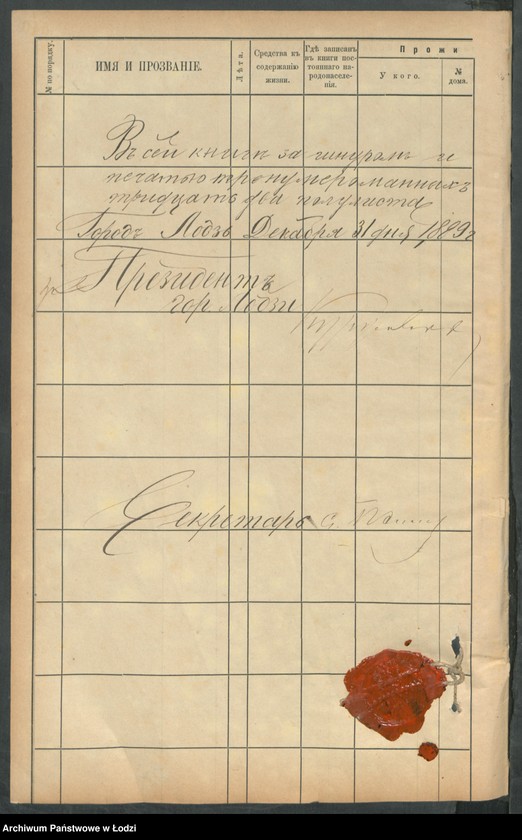 № по порядку.
ИМЯ И ПРОЗВАНІЕ.
Лѣта.
Средства къ
содержанію
жизни.
Гдѣ записанъ
въ книги пос-
тояннаго на-
родонаселе-
нія.
Прожи
У кого.
№
дома.
Въ сей книгѣ за шнуромъ и
печатью пронумерованныхъ
тридцать два полулиста
Городъ Лодзь Декабря 31 дня 1889 г
Президентъ
гор. Лодзи
Секретарь
Archiwum Państwowe w Łodzi